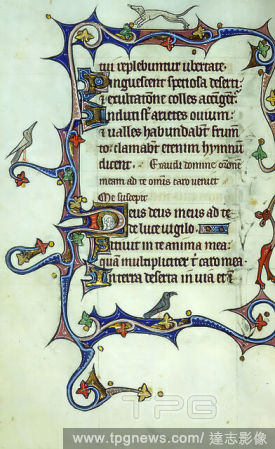 tui replebuntur ubertate.
Pinguescent speciosa deserti
et exultatione colles accingent
Induti st arietes ovium: 
et valles habundabunt frum
to clamabt etenim hymnum
dicent. Exaudi domine orone
meam ad te omis caro veniet
Me suscepit
Deus deus meus ad te
de luce vigilo.
Sitivit in te anima mea:
quam multipliciter t caro mea
In terra deserta in via et
TPG
www.tpgnews.com/達志影像